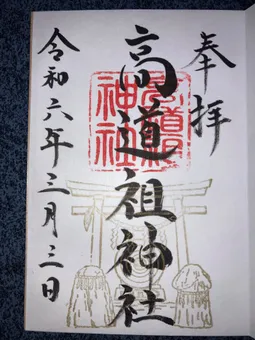 奉拝
高道祖神社
高道祖神社
令和六年三月三日